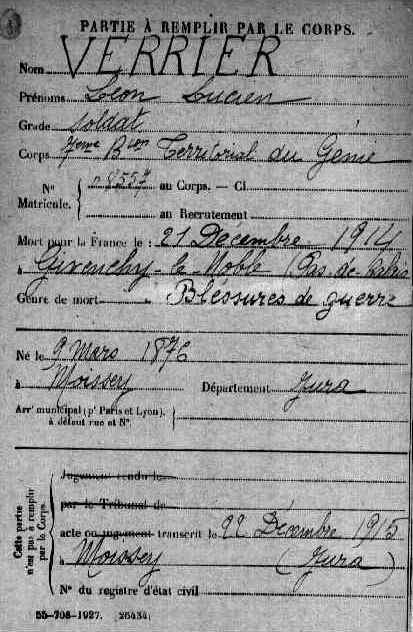 PARTIE À REMPLIR PAR LE CORPS.
Nom VERRIER
Prénoms Léon Lucien
Grade soldat
Corps 7eme Bton Territorial du Génie
N° Matricule. { n° 9557 au Corps. — Cl.
au Recrutement
Mort pour la France le : 21 Décembre 1914
à Givenchy-le-Noble (Pas-de-Calais
Genre de mort Bléssures de guerre
Né le 9 Mars 1876
à Moissey Département Jura
Arrt municipal (pr Paris et Lyon),
à défaut rue et N°
Cette partie n'est pas à remplir par le Corps.
Jugement rendu le
par le Tribunal de
acte ou jugement transcrit le 22 Décembre 1915
à Moissey (Jura)
N° du registre d'état civil
55-708-1927. 26434.